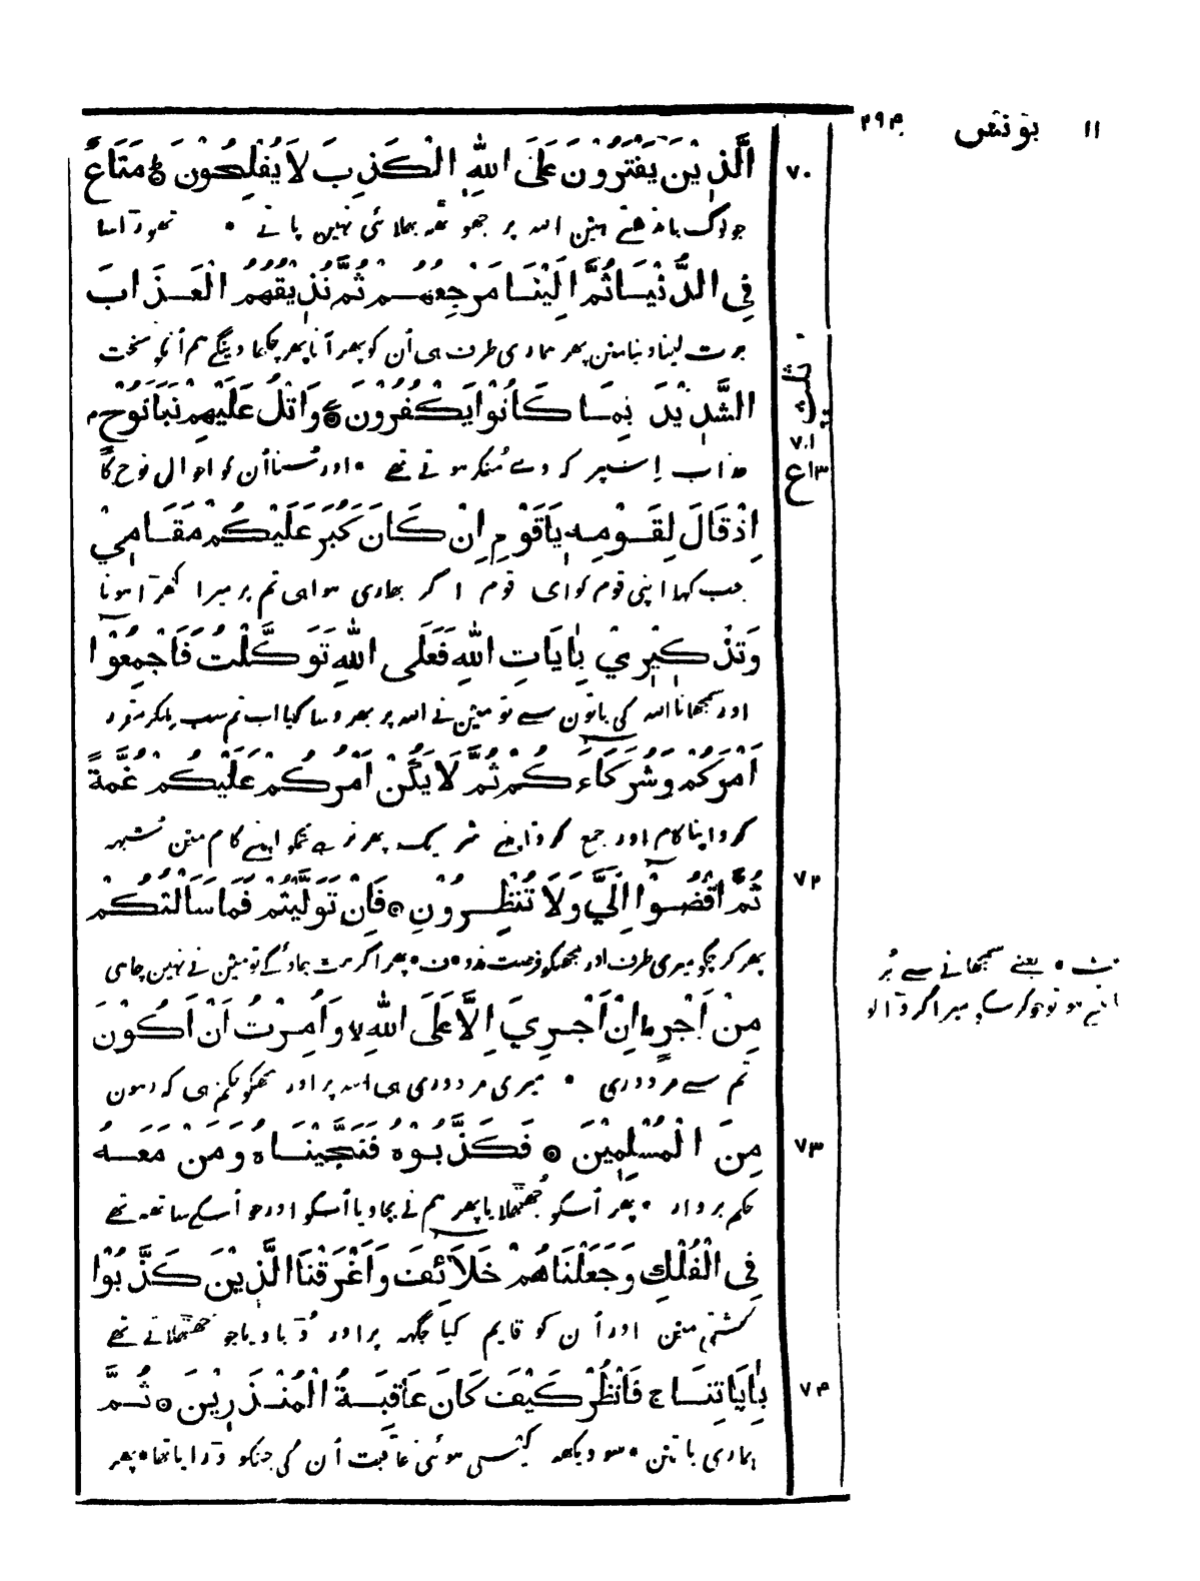 ١١ يونس ٢٩۴
الَّذِيْنَ يَفْتَرُوْنَ عَلَى اللّٰهِ الْكَذِبَ لَا يُفْلِحُوْنَ ط مَتَاعٌ
٧٠
جو لوگ باندهتے هین الله پر جھوٹھہ بھلائی نہین پاتے • تھوڑا سا
فِي الدُّنْيَا ثُمَّ اِلَيْنَا مَرْجِعُهُمْ ثُمَّ نُذِيْقُهُمُ الْعَذَابَ
برت لینا دنیا مین پھر هماری طرف هی اُن کو پھر آنا پھر چکھا دینگے هم اُنکو سخت
ثلث
الشَّدِيْدَ بِمَا كَانُوْا يَكْفُرُوْنَ ع وَاتْلُ عَلَيْهِمْ نَبَاَ نُوْحٍ م
٧١
١٣ ع
عذاب اِسپر که وے مُنکر هوتے تھے • اور سُنا اُن کو احوال نوح کا
اِذْ قَالَ لِقَوْمِهٖ يَاقَوْمِ اِنْ كَانَ كَبُرَ عَلَيْكُمْ مَقَامِيْ
جب کہا اپنی قوم کو ای قوم اگر بھاری هوا هی تم پر میرا کھڑا هونا
وَتَذْكِيْرِيْ بِاٰيَاتِ اللّٰهِ فَعَلَى اللّٰهِ تَوَكَّلْتُ فَاَجْمِعُوْا
اور سمجھانا الله کی باتون سے تو مین نے الله پر بھروسا کیا اب تم سب ملکر مقرر
اَمْرَكُمْ وَشُرَكَاءَكُمْ ثُمَّ لَا يَكُنْ اَمْرُكُمْ عَلَيْكُمْ غُمَّةً
کرو اپنا کام اور جمع کرو اپنے شریک پھر نرہے تمکو اپنے کام مین شبہہ
ثُمَّ اقْضُوْا اِلَيَّ وَلَا تُنْظِرُوْنِ ۞ فَاِنْ تَوَلَّيْتُمْ فَمَا سَاَلْتُكُمْ
٧٢
پھر کر چکو میری طرف اور مجھکو فرصت ندو • ف • پھر اگر هٹ جاؤگے تو مین نے نہین چاهی
ف • یعنے سمجھانے سے بُر
مِنْ اَجْرٍ ط اِنْ اَجْرِيَ اِلَّا عَلَى اللّٰهِ لا وَاُمِرْتُ اَنْ اَكُوْنَ
تم سے مزدوری • میری مزدوری هی الله پر اور مجھکو حکم هی که رهون
مِنَ الْمُسْلِمِيْنَ ۞ فَكَذَّبُوْهُ فَنَجَّيْنَاهُ وَمَنْ مَعَهُ
٧٣
حکم بردار • پھر اُسکو جھٹھلایا پھر هم نے بچا دیا اُسکو اور جو اُسکے ساتھه تھے
فِي الْفُلْكِ وَجَعَلْنَاهُمْ خَلَائِفَ وَاَغْرَقْنَا الَّذِيْنَ كَذَّبُوْا
کشتی مین اور اُن کو قایم کیا جگهہ پر اور ڈُبا دیا جو جھٹھلاتے تھے
بِاٰيَاتِنَا ج فَانْظُرْ كَيْفَ كَانَ عَاقِبَةُ الْمُنْذَرِيْنَ ۞ ثُمَّ
٧۴
هماری باتین • سو دیکھه کیسی هوئی عاقبت اُن کی جنکو ڈرایا تھا • پھر